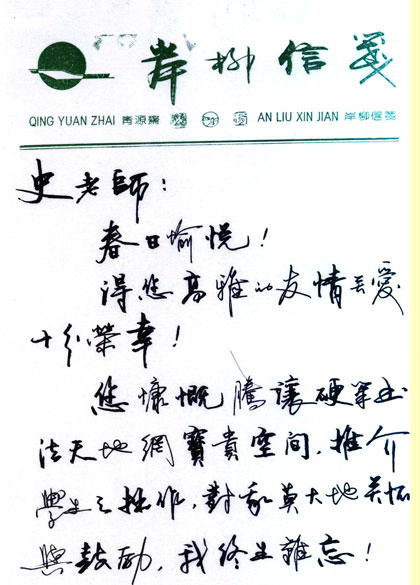 岸柳信笺
QING YUAN ZHAI 青源斋 AN LIU XIN JIAN 岸柳信笺
史老師：
春日愉悦！
得您高雅的友情关愛
十分榮幸！
您慷慨騰讓硬筆书
法天地網寶貴空间，推介
學生之拙作，對我莫大地关怀
與鼓励，我终生難忘！